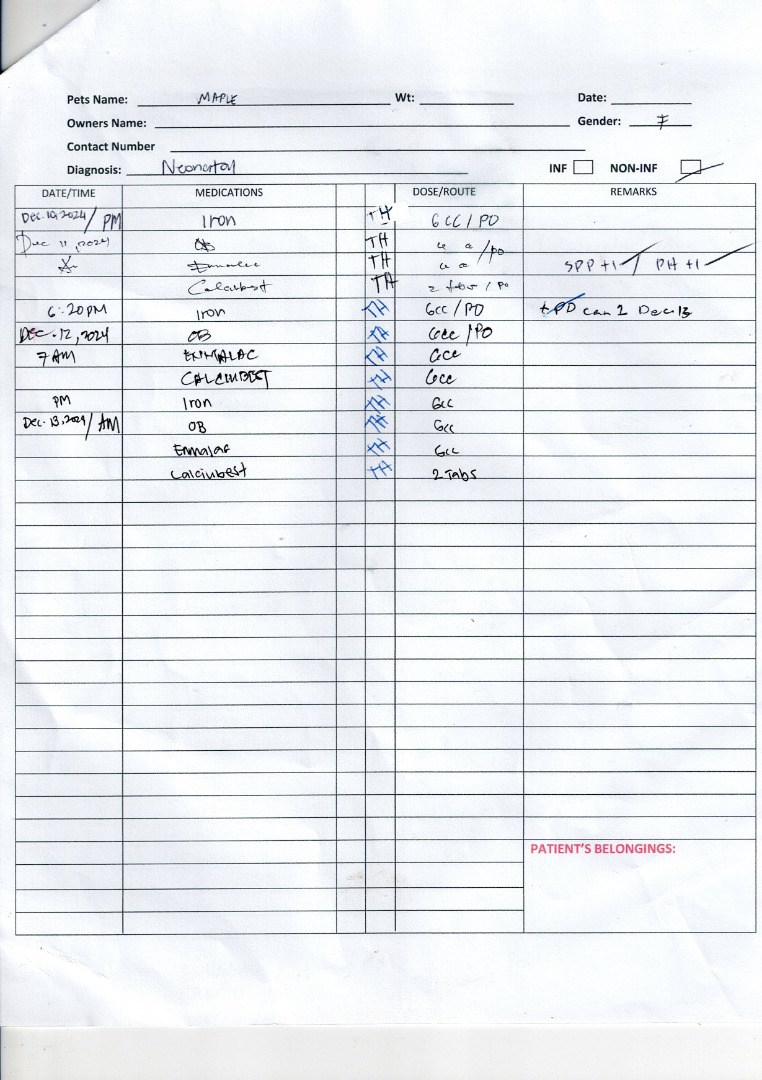 Pets Name: MAPLE Wt: Date:
Owners Name: Gender: F
Contact Number
Diagnosis: INF NON-INF
DATE/TIME MEDICATIONS DOSE/ROUTE REMARKS
Dec. 10, 2024 / PM Iron TH 6CC / PO
Dec 11, 2024 OB TH /PO
TH SPP +1 PH +1
Calciubest TH 2 / PO
6:20PM Iron TH 6cc / PO can 2 Dec 13
DEC. 12, 2024 OB TH 6cc / PO
7 AM ENMALAC TH 6cc
CALCIUBEST TH 6cc
PM Iron TH 6cc
Dec. 13, 2024 / AM OB TH 6cc
Enmalac TH 6cc
Calciubest TH 2 Tabs
PATIENT'S BELONGINGS: